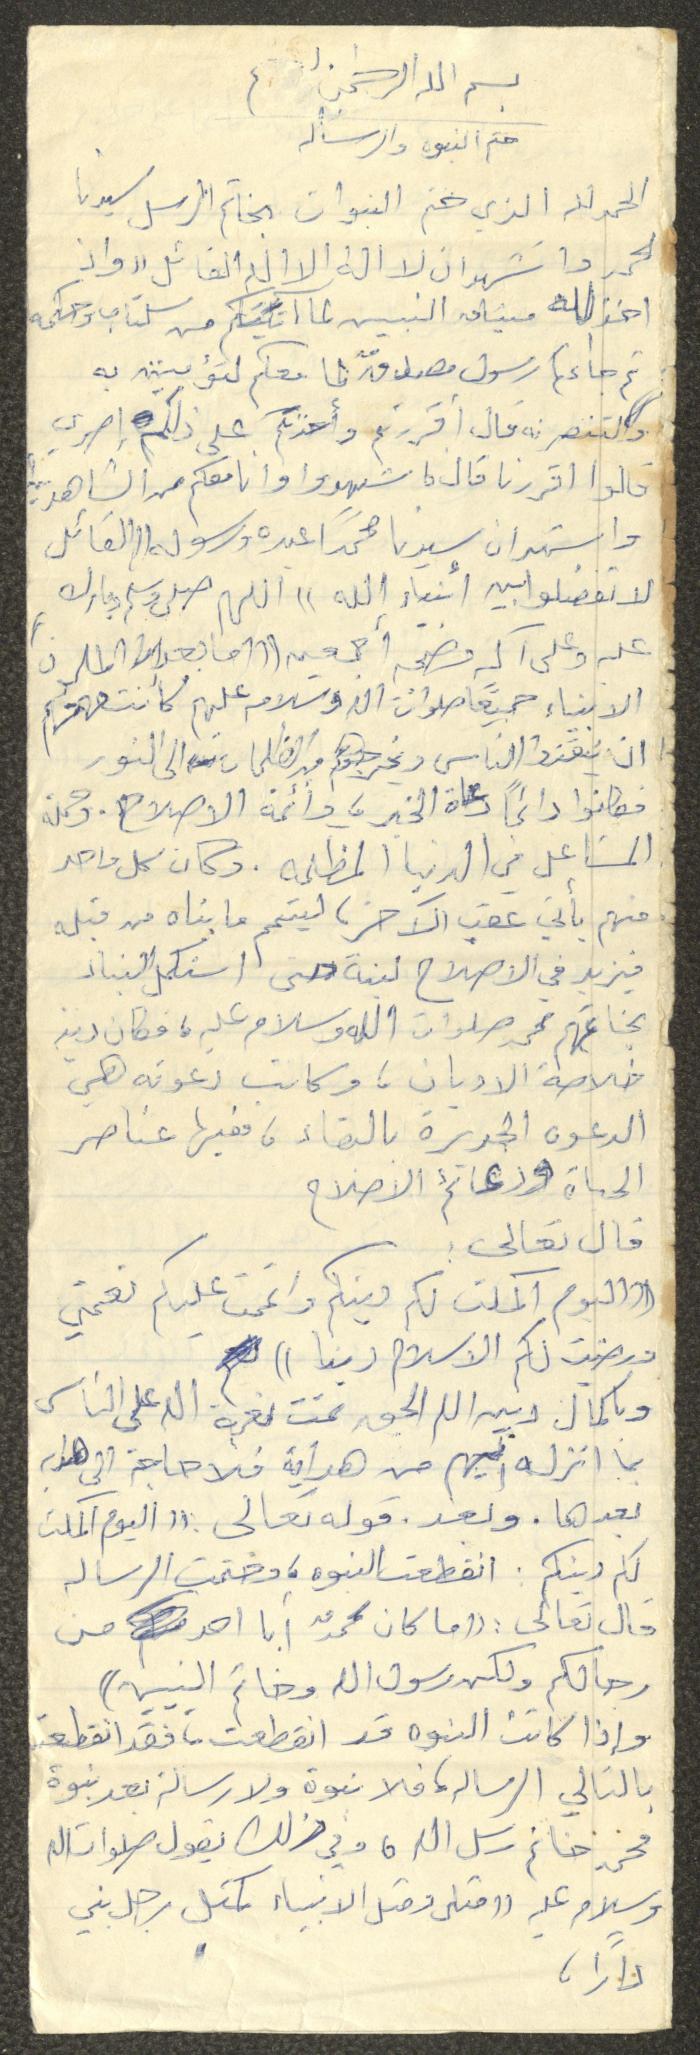 بسم الله الرحمن
ختم النبوه والرساله
الحمد لله الذي ختم النبوات بخاتم الرسل سيدنا
محمد وأشهد ان لا اله الا الله القائل ((واذ
اخذ الله ميثاق النبيين لما اتيتكم من كتاب وحكمه
ثم جاءكم رسول مصدق لما معكم لتؤمنن به
ولتنصرنه قال أقررتم وأخذتم على ذلكم إصري
قالوا اقررنا قال فاشهدوا وانا معكم من الشاهدين
واشهد ان سيدنا محمدًا عبده ورسوله ((القائل
لا تفضلوا بين أنبياء الله )) اللهم صلي وسلم وبارك
عليه وعلى آله وصحبه أجمعين ((اما بعد
الانبياء جميعًا صلوات الله وسلامه عليهم كانت مهمتهم
ان ينقذوا الناس ويخرجوهم من الظلمات الى النور
فكانوا دائمًا دعاة الخير، وأئمة الاصلاح. وحملة
المشاعل في الدنيا المظلمه. وكان كل واحد
منهم يأتي عقب الآخر، ليتمم ما بناه من قبله
فيزيد في الاصلاح لبنة حتى استكمل البناء
بخاتمهم محمد صلوات الله وسلامه عليه، فكان دينه
خلاصة الاديان، وكانت دعوته هي
الدعوه الجديرة بالبقاء، ففيها عناصر
الحياة ودعائم الاصلاح
قال تعالى:
((اليوم اكملت لكم دينكم واتممت عليكم نعمتي
ورضيت لكم الاسلام دينا))
وباكمال دين الله الحق تمت نعمة الله على الناس
بما انزله اليهم من هداية فلا حاجة الى هداية
بعدها. وبعد. قوله تعالى: ((اليوم اكملت
لكم دينكم: انقطعت النبوه، وختمت الرساله
قال تعالى: ((ما كان محمدٌ أبا احد من
رجالكم ولكن رسول الله وخاتم النبيين))
وإذا كانت النبوه قد انقطعت، فقد انقطعت
بالتالي الرساله، فلا نبوة ولا رسالة بعد نبوة
محمد خاتم رسل الله، وفي ذلك يقول صلوات الله
وسلامه عليه ((مثلي ومثل الانبياء كمثل رجل بني
دارًا،